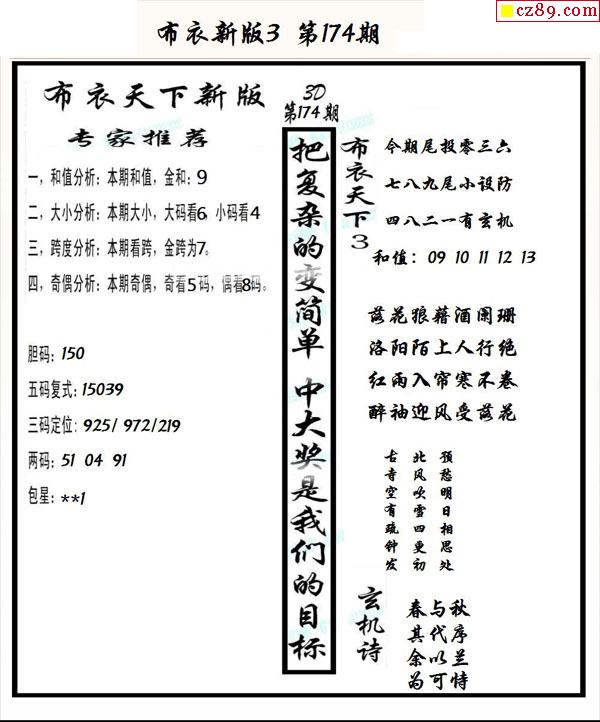 cz89.com
布衣新版3 第174期
布衣天下新版
专家推荐
一，和值分析：本期和值，金和：9
二，大小分析：本期大小，大码看6，小码看4
三，跨度分析：本期看跨，金跨为7。
四，奇偶分析：本期奇偶，奇看5码，偶看8码。
胆码：150
五码复式：15039
三码定位：925/ 972/219
两码：51 04 91
包星：**1
3D
第174期
把复杂的变简单 中大奖是我们的目标
布衣天下3
今期尾投零三六
七八九尾小设防
四八二一有玄机
和值：09 10 11 12 13
落花狼藉酒阑珊
洛阳陌上人行绝
红雨入帘寒不卷
醉袖迎风受落花
预愁明日相思处
北风吹雪四更初
古寺空有疏钟发
玄机诗
春与秋
其代序
余以兰
为可恃